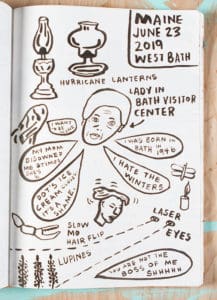 MAINE
JUNE 23
2019
WEST BATH
HURRICANE LANTERNS
LADY IN
BATH VISITOR
CENTER
I WANT
MY MOM
DISOWNED
ME 3 TIMES
I WAS BORN IN
BATH IN 1946
I HATE
THE
WINTERS
DOT'S
ICE
CREAM
SHANE
SLOW
MO
HAIR FLIP
LASER
EYES
LUPINES
YOU'RE NOT THE
BOSS OF ME
SHHHHH